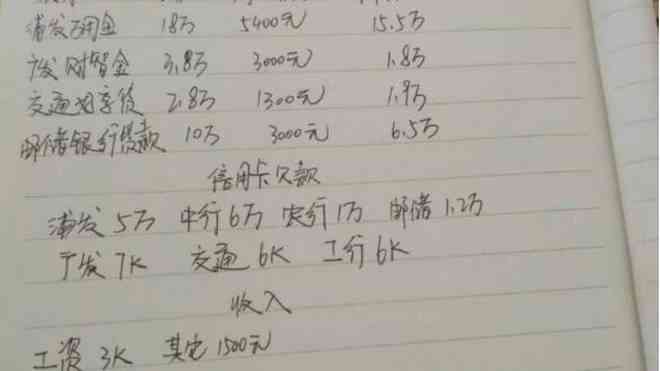 浦发万用金 18万 5400元 15.5万
广发财智金 3.8万 3000元 1.8万
交通好享贷 2.8万 1300元 1.9万
邮储银行贷款 10万 3000元 6.5万
信用卡欠款
浦发5万 中行6万 农行1万 邮储1.2万
广发7K 交通6K 工行6K
收入
工资 3K 其它 1500元